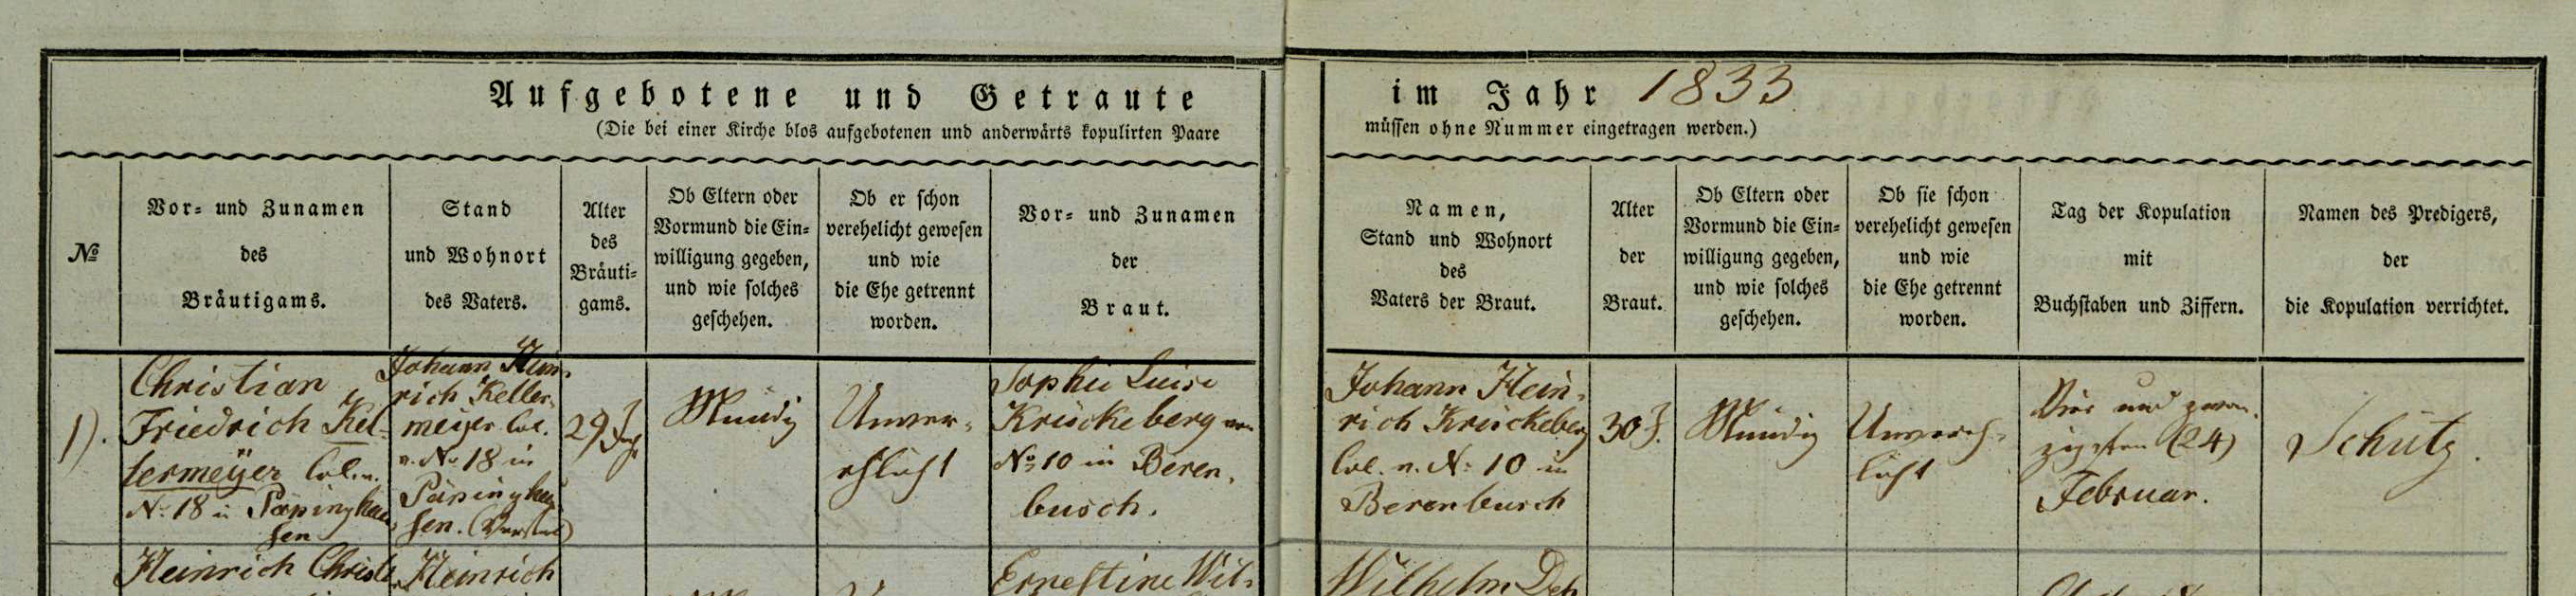 Aufgebotene und Getraute
(Die bei einer Kirche blos aufgebotenen und anderwärts kopulirten Paare
im Jahr 1833
müssen ohne Nummer eingetragen werden.)
№
Vor- und Zunamen
des
Bräutigams.
Stand
und Wohnort
des Vaters.
Alter
des
Bräuti-
gams.
Ob Eltern oder
Vormund die Ein-
willigung gegeben,
und wie solches
geschehen.
Ob er schon
verehelicht gewesen
und wie
die Ehe getrennt
worden.
Vor- und Zunamen
der
Braut.
Namen,
Stand und Wohnort
des
Vaters der Braut.
Alter
der
Braut.
Ob Eltern oder
Vormund die Ein-
willigung gegeben,
und wie solches
geschehen.
Ob sie schon
verehelicht gewesen
und wie
die Ehe getrennt
worden.
Tag der Kopulation
mit
Buchstaben und Ziffern.
Namen des Predigers,
der
die Kopulation verrichtet.
1).
Christian
Friedrich Kel-
lermeÿer Col. n.
No 18 in Päpinghau
sen
Johann Hein-
rich Keller-
meÿer Col.
n. No 18 in
Päpinghau
sen.
29
Mündig
Unver-
ehlicht
Sophie Luise
Krückeberg von
No 10 in Beren-
busch.
Johann Hein-
rich Krückeberg
Col. n. No 10 in
Berenbusch
30 J.
Mündig
Unvereh-
licht
Vier und zwan-
zigsten (24)
Februar.
Schütz.
Heinrich
Heinrich
Ernestine Wil-
Wilhelm